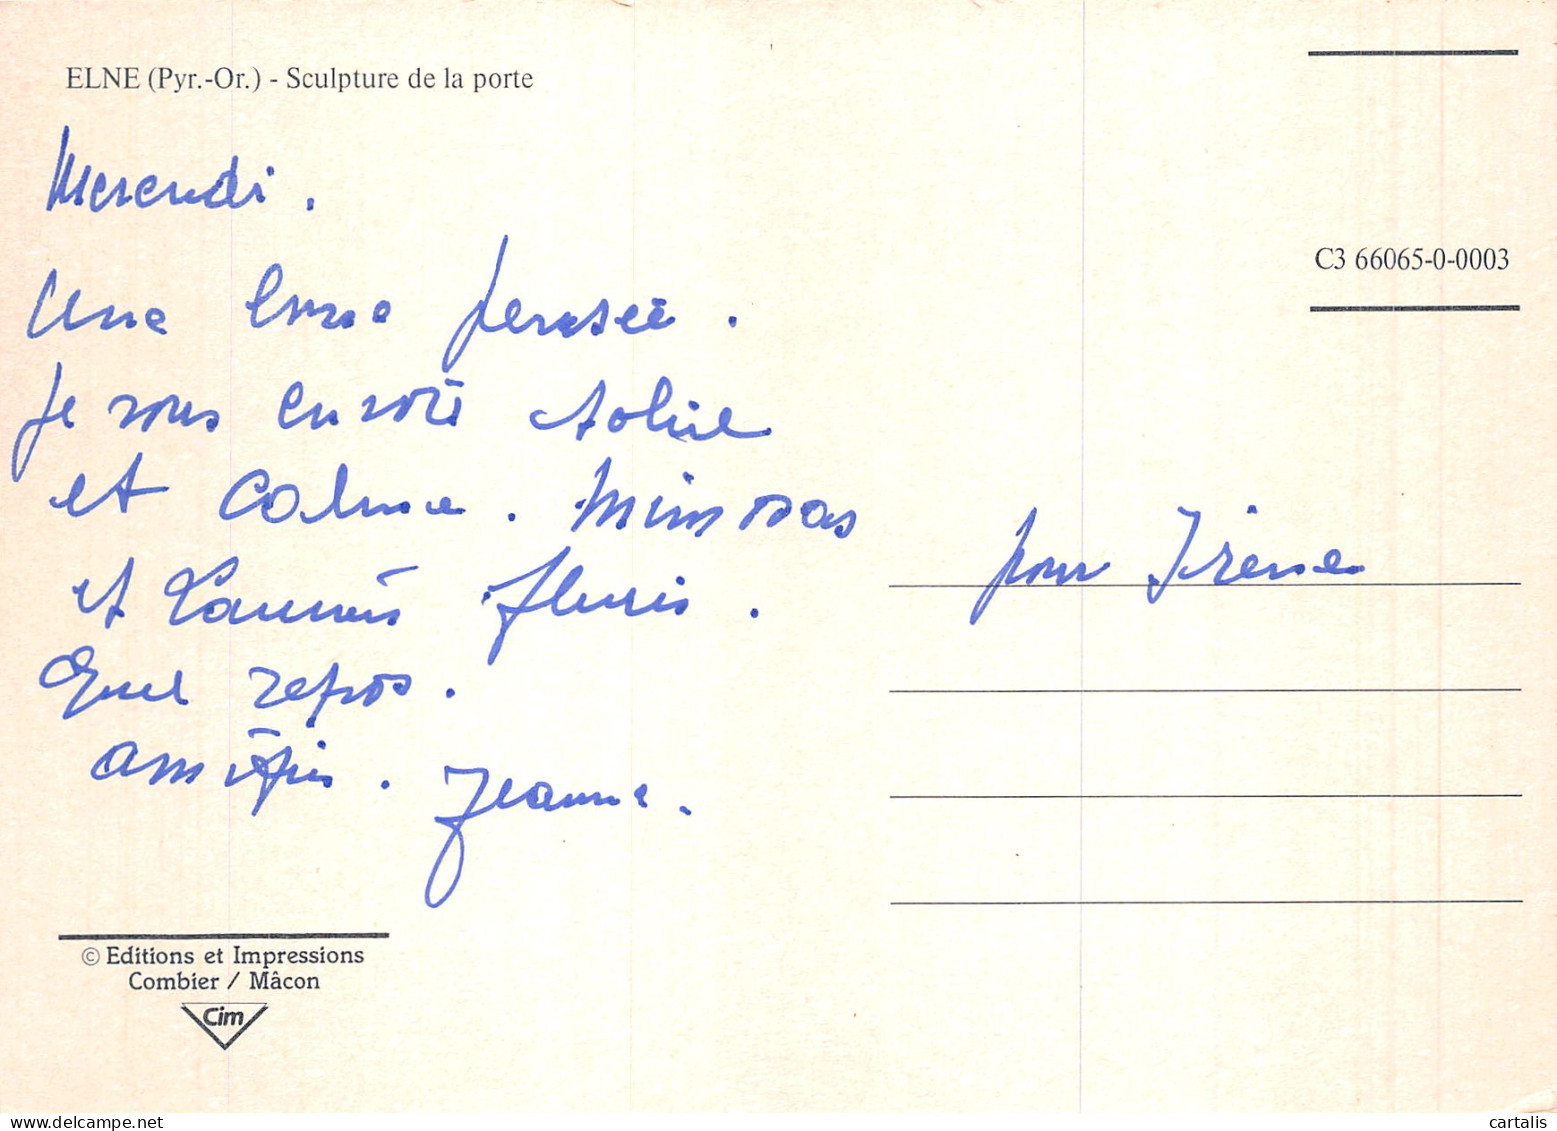 ELNE (Pyr.-Or.) - Sculpture de la porte
Mercredi.
Une bonne pensée.
Je vous envoie
et calme. Mimosas
et fleuris.
Quel repos.
amitiés. Jeanne.
C3 66065-0-0003
pour Irène
© Editions et Impressions
Combier / Mâcon
Cim
cartalis